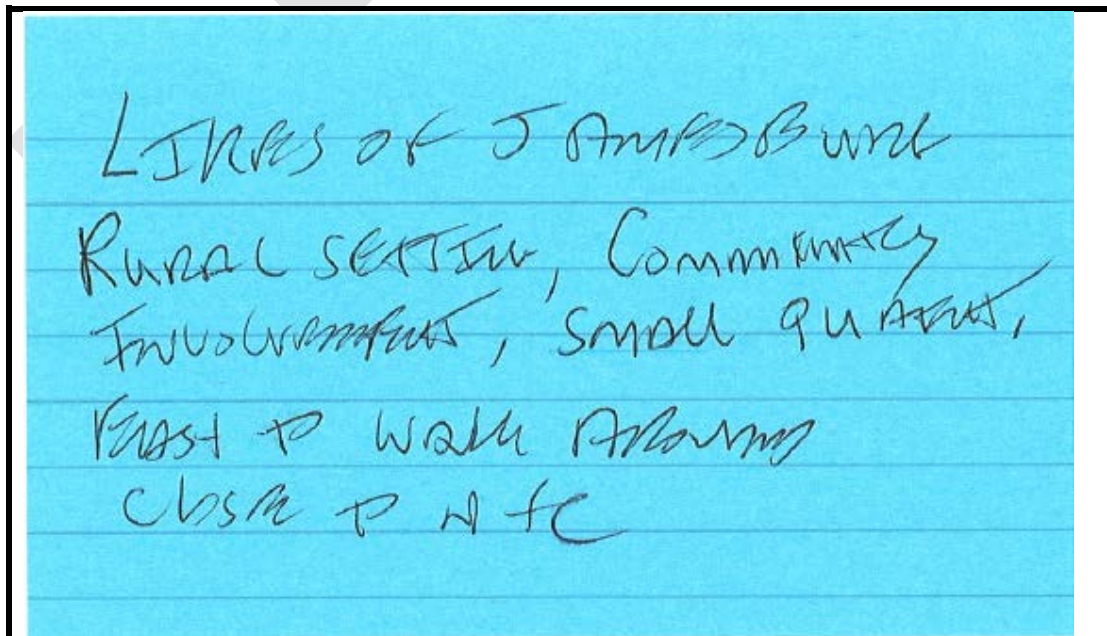 LIKES OF JAMESBURG
RURAL SETTING, COMMUNITY
INVOLVEMENT, SMALL QUAINT,
EASY TO WALK AROUND
CLOSE TO NYC